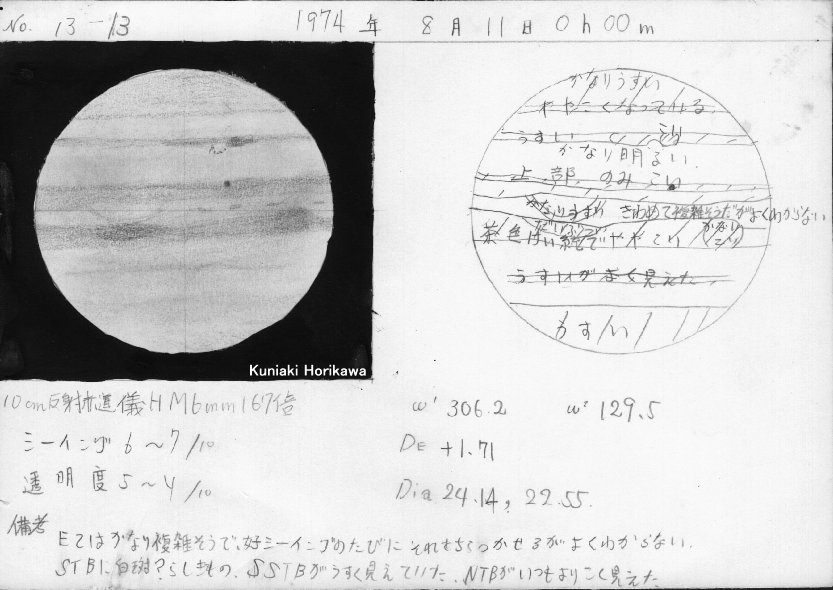 No. 13-13 1974 年 8 月 11 日 0 h 00 m
かなりうすい
ややこくなっている
うすい
かなり明るい.
上部のみこい
かなりうすい きわめて複雑そうだがよくわからない
茶色っぽい 続でややこい
うすいがよく見えた
うすい
Kuniaki Horikawa
10cm反射赤道儀HM6mm167倍
シーイング 6~7/10
透明度 5~4/10
ω¹ 306.2 ω² 129.5
DE +1.71
Dia 24.14, 22.55.
備考
EZはかなり複雑そうで、好シーイングのたびにそれをちらつかせるがよくわからない.
STBに白斑?らしきもの. SSTBがうすく見えていた. NTBがいつもよりこく見えた.